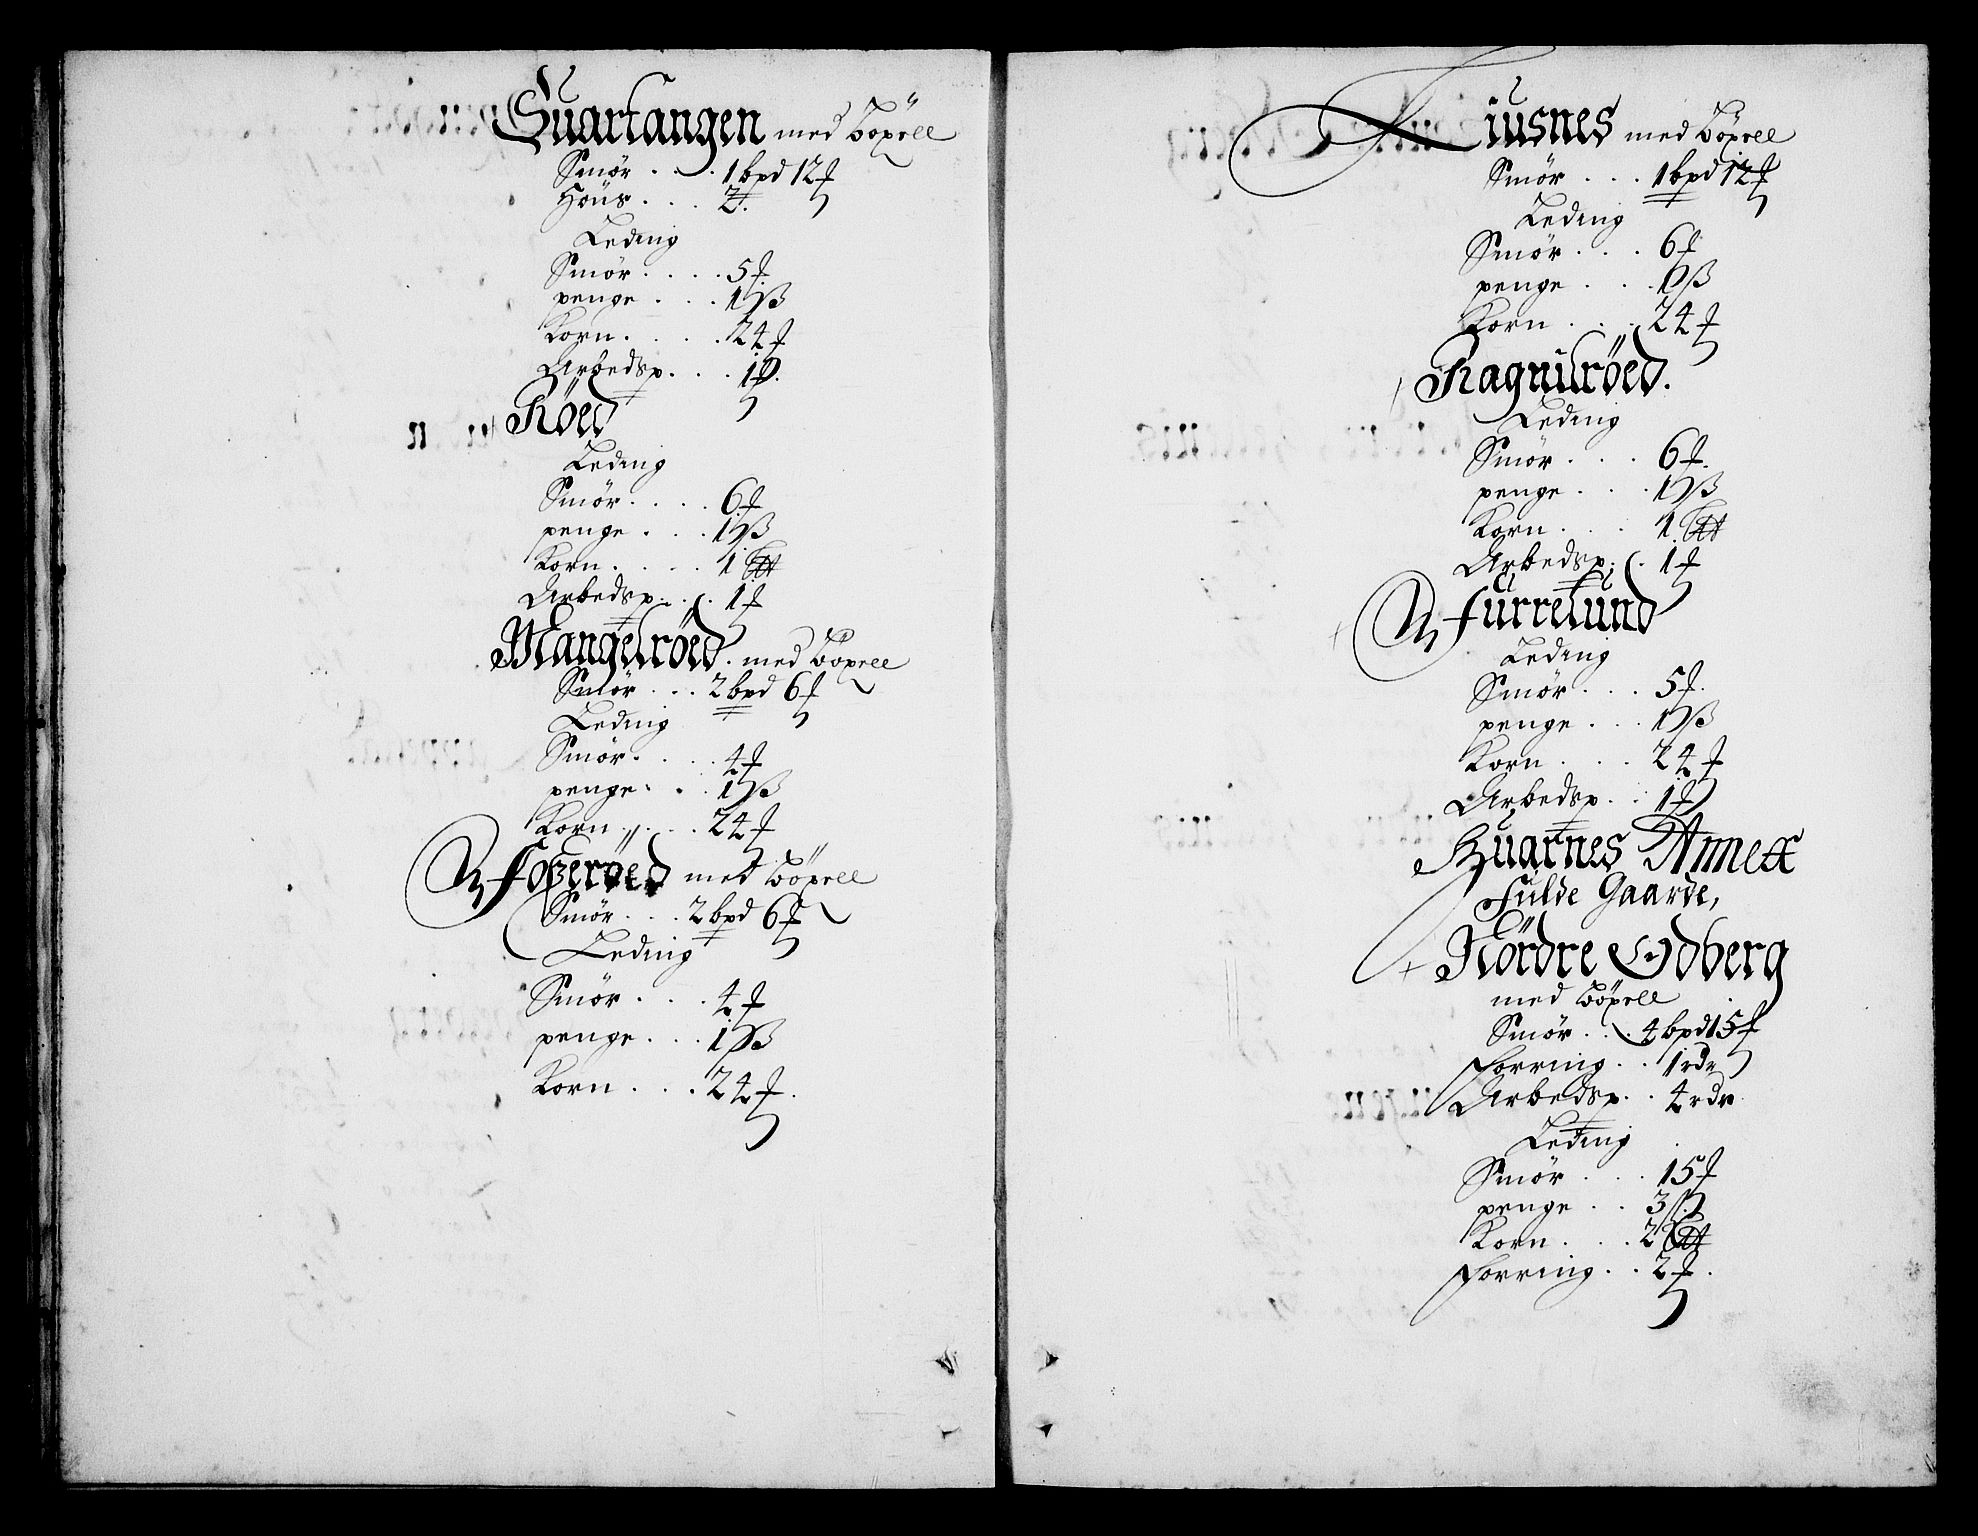 Suartangen med Böxell
Smör . . . 1 bpd 12 ℔
Höns . . . 2.
Leding
Smör . . . . 5 ℔
penge . . . 1 ß
Korn . . . . 24 ℔
Arbedsp. . . 1 ℔
Röed
Leding
Smör . . . . 6 ℔
penge . . . 1 ß
Korn . . . . 1
Arbedsp. . . 1 ℔
Mangelröed. med Böxell
Smör . . . 2 bpd 6 ℔
Leding
Smör . . . . 4 ℔
penge . . . 1 ß
Korn . . . . 24 ℔
med Böxell
Smör . . . 2 bpd 6 ℔
Leding
Smör . . . 4 ℔
penge . . . 1 ß
Korn . . . 24 ℔
Tiusnes med Böxell
Smör . . . 1 bpd 12 ℔
Leding
Smör . . . 6 ℔
penge . . . 1 ß
Korn . . . 24 ℔
Ragnilröed.
Leding
Smör . . . 6 ℔
penge . . . 1 ß
Korn . . . 1
Arbedsp. . 1 ℔
Furrelund
Leding
Smör . . . 5 ℔
penge . . . 1 ß
Korn . . . 24 ℔
Arbedsp. . . 1 ℔
Huarnes Annex
Fulde Gaarde,
Nördre Odberg
med Böxell
Smör . . . 4 bpd 15 ℔
Forring . . 1 rdr
Arbedsp. . 4 rdr
Leding
Smör . . . 15 ℔
penge . . 3 ß
Korn . . . 2
Forring . . 2 ℔